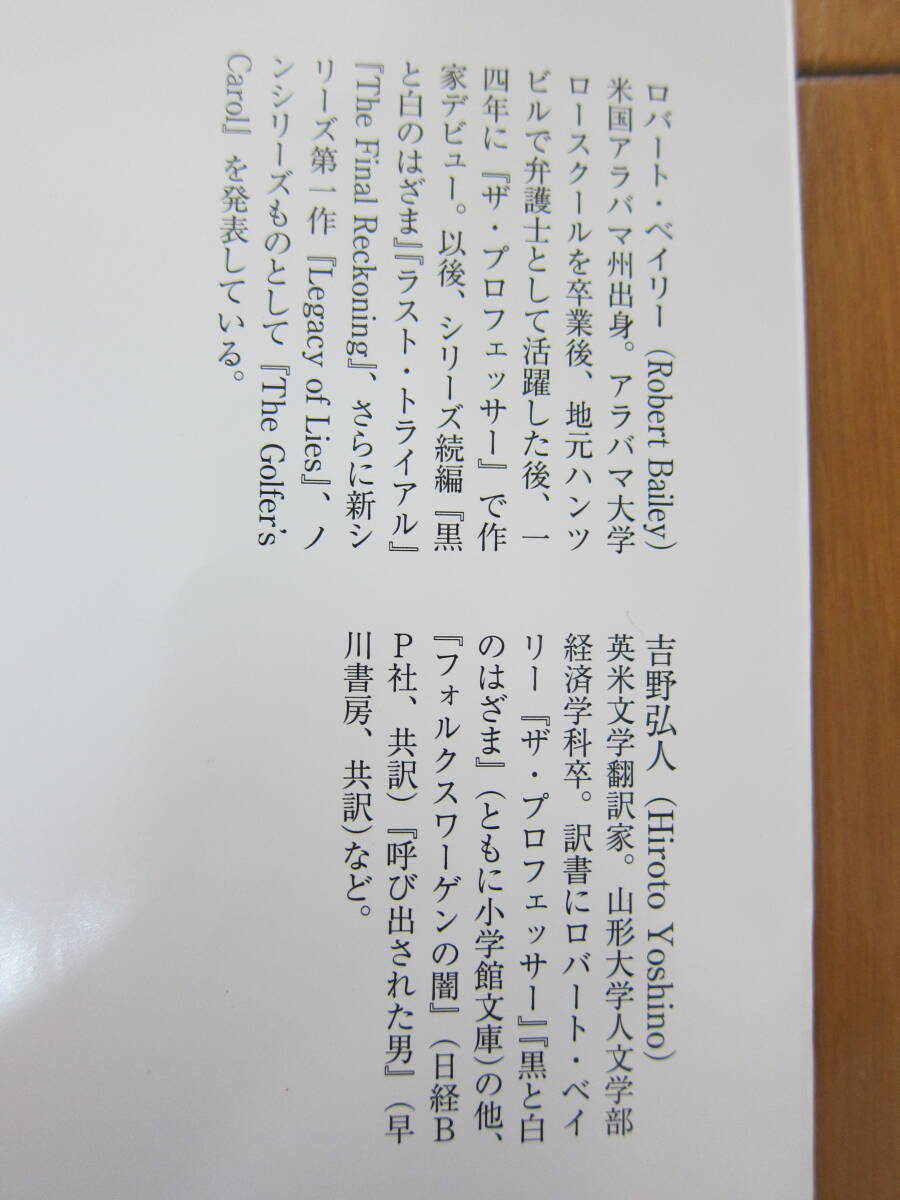 ロバート・ベイリー（Robert Bailey）
米国アラバマ州出身。アラバマ大学
ロースクールを卒業後、地元ハンツ
ビルで弁護士として活躍した後、一
四年に『ザ・プロフェッサー』で作
家デビュー。以後、シリーズ続編『黒
と白のはざま』『ラスト・トライアル』
『The Final Reckoning』、さらに新シ
リーズ第一作『Legacy of Lies』、ノ
ンシリーズものとして『The Golfer's
Carol』を発表している。
吉野弘人（Hiroto Yoshino）
英米文学翻訳家。山形大学人文学部
経済学科卒。訳書にロバート・ベイ
リー『ザ・プロフェッサー』『黒と白
のはざま』（ともに小学館文庫）の他、
『フォルクスワーゲンの闇』（日経B
P社、共訳）『呼び出された男』（早
川書房、共訳）など。